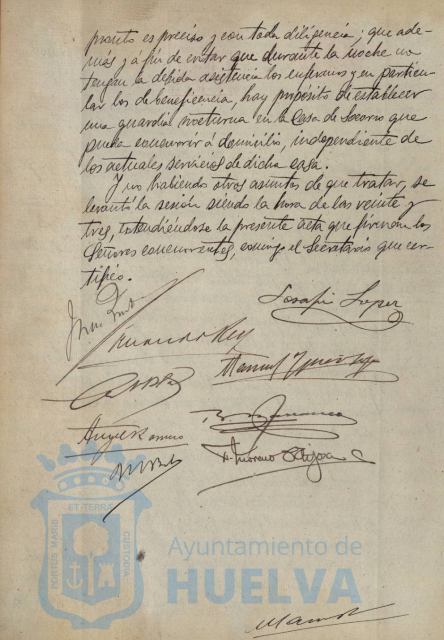 pronto es preciso y con toda diligencia; que ade-
más y a fin de evitar que durante la noche no
tengan la debida asistencia los enfermos y en particu-
lar los de beneficencia, hay propósito de establecer
una guardia nocturna en la Casa de Socorro que
pueda concurrir á domicilio, independiente de
los actuales servicios de dicha casa.
Y no habiendo otros asuntos de que tratar, se
levantó la sesión siendo la hora de las veinte y
tres, extendiéndose la presente acta que firman los
Señores concurrentes, conmigo el Secretario que cer-
tifico.
Josafá López
Fernando Rey
Manuel
A. Moreno
PORTUS MARIS
ET TERRE
CUSTODIA
Ayuntamiento de
HUELVA